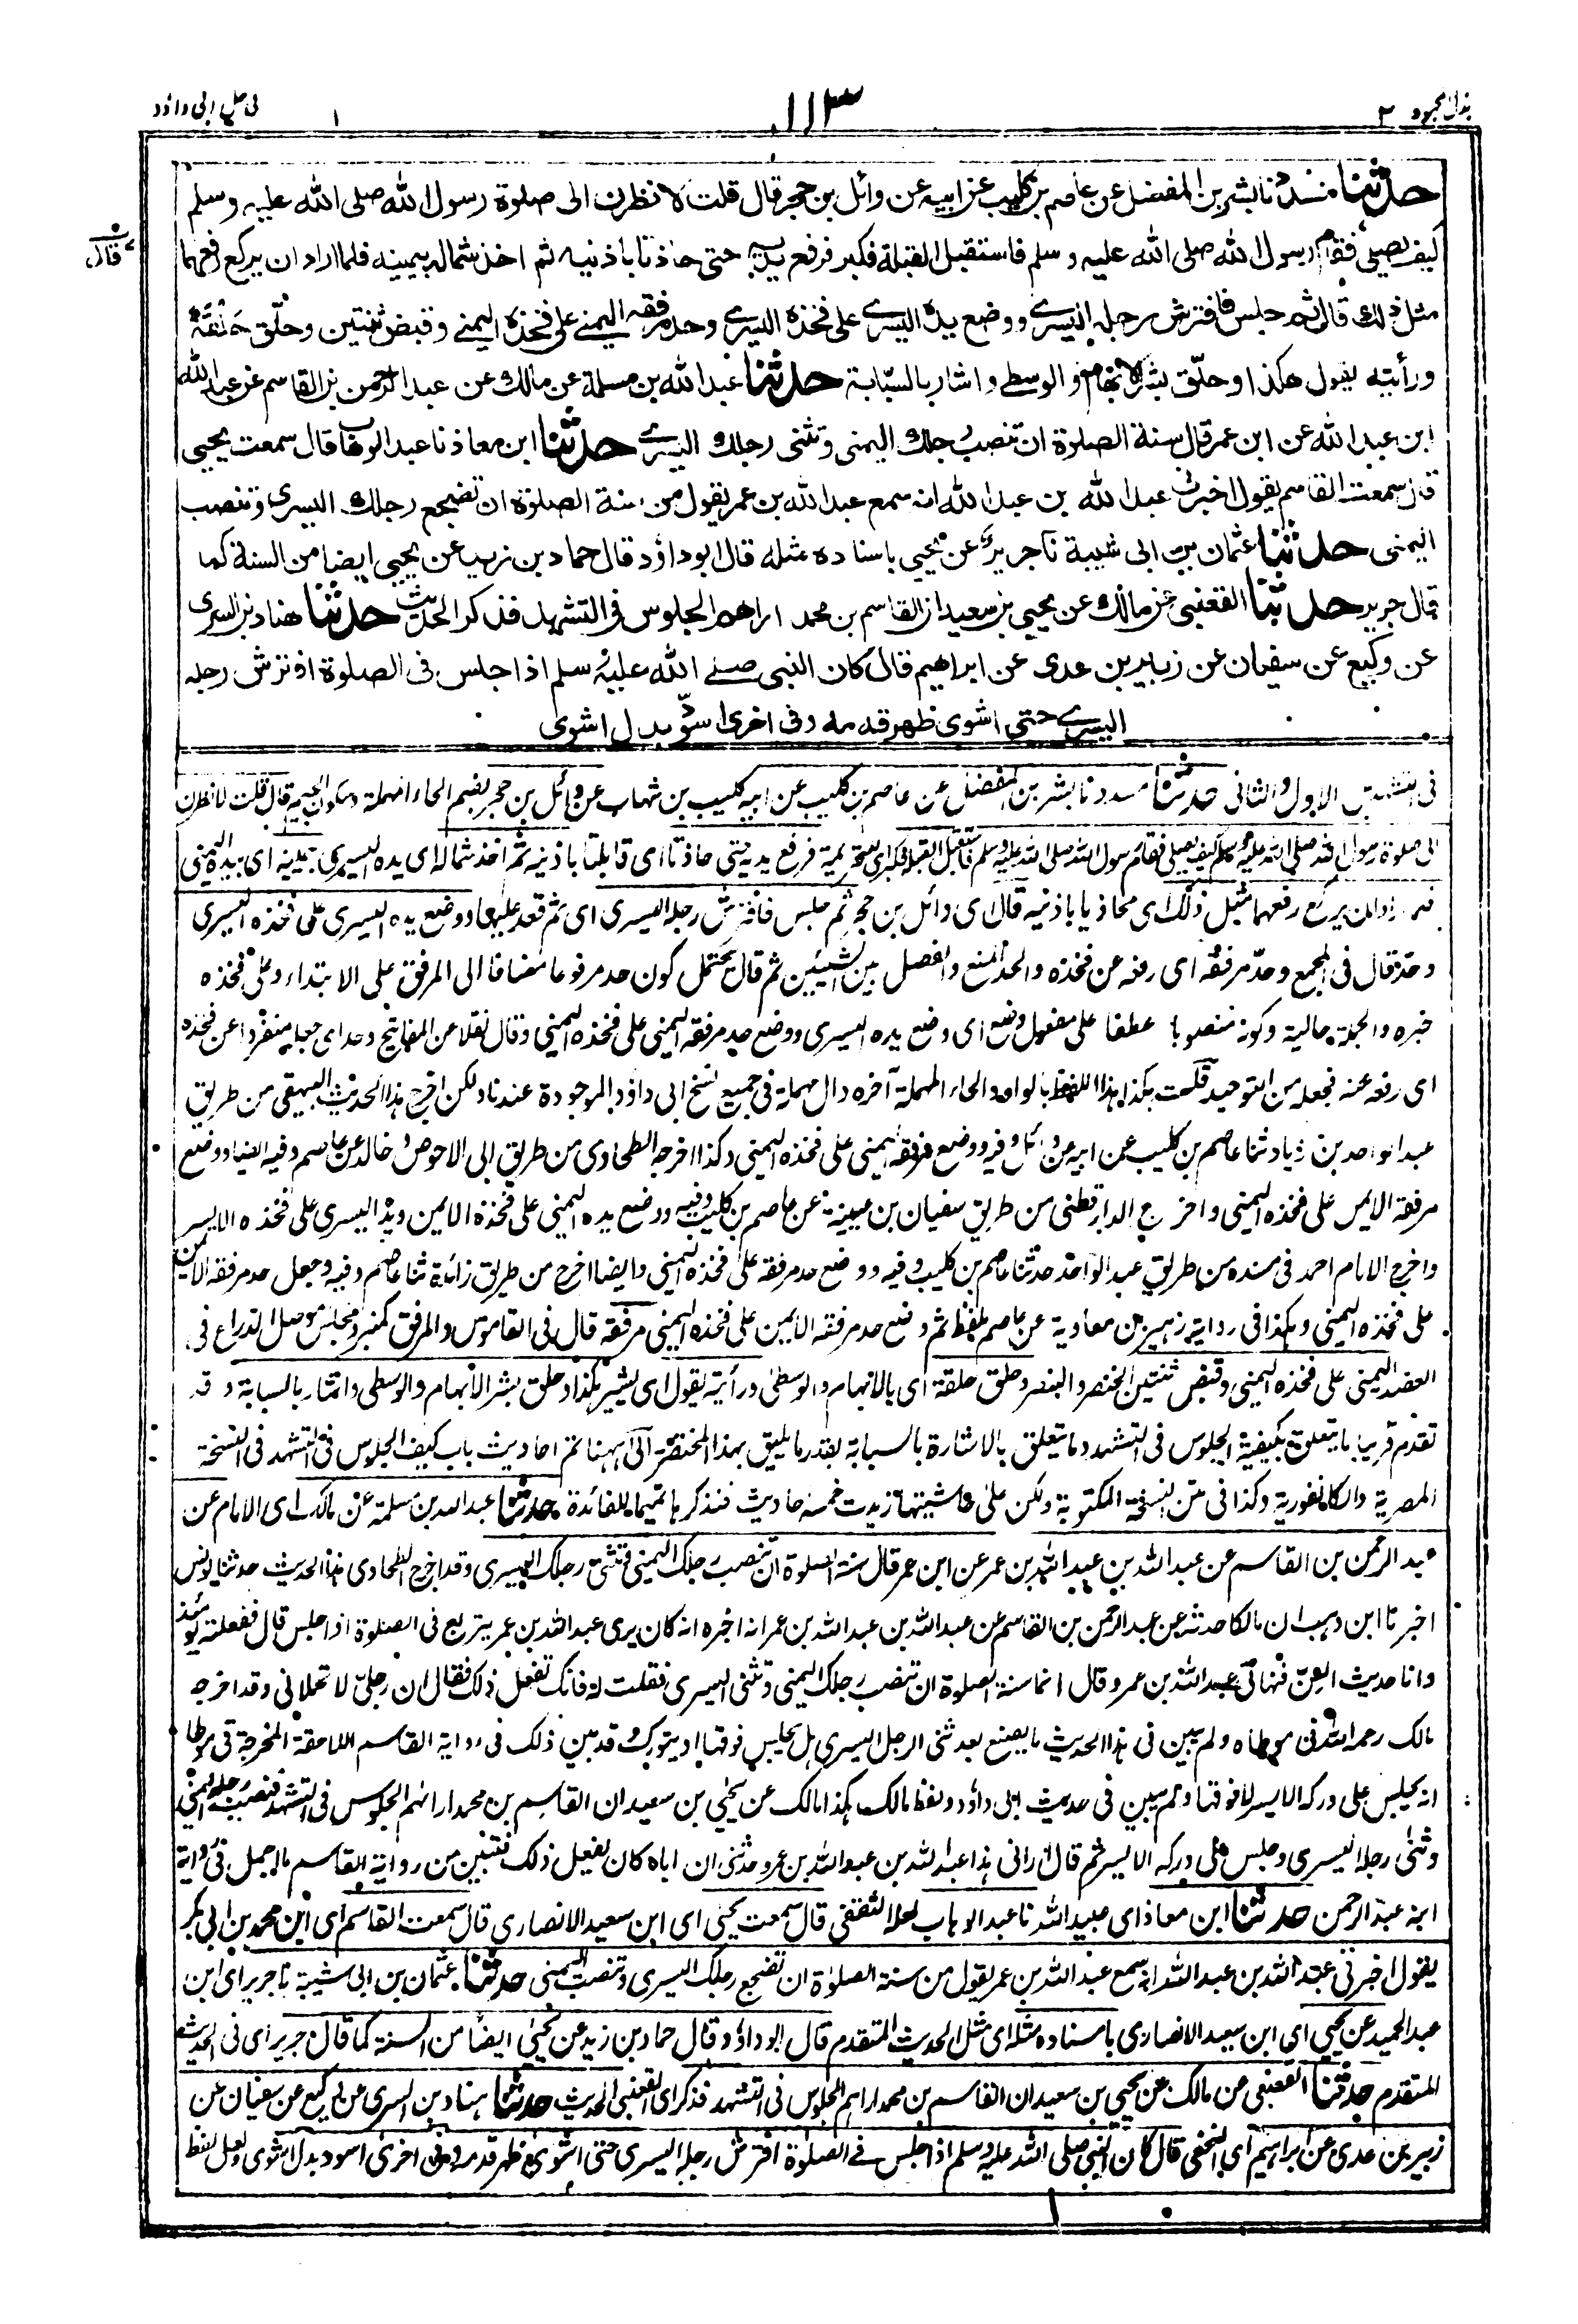 بذل المجهود ٢
١١٣
١
فی حل ابی داؤد
حدثنا مسدد نا بشر بن المفضل عن عاصم بن كليب عن ابيه عن وائل بن حجر قال قلت لا نظرن الى صلوة رسول الله صلى الله عليه وسلم
كيف يصلى فقام رسول الله صلى الله عليه وسلم فاستقبل القبلة فكبر فرفع يديه حتى حاذتا باذنيه ثم اخذ شماله بيمينه فلما اراد ان يركع رفعهما
قال
مثل ذلك قال ثم جلس فافترش رجله اليسرى ووضع يده اليسرى على فخذه اليسرى وحد مرفقه اليمنى على فخذه اليمنى وقبض ثنتين وحلّق حلقة
ورأيته يقول هكذا وحلّق بشر الابهام والوسطى واشار بالسبّابة حدثنا عبد الله بن مسلمة عن مالك عن عبد الرحمن بن القاسم عن عبد الله
ابن عبد الله عن ابن عمر قال سنة الصلوة ان تنصب رجلك اليمنى وتثنى رجلك اليسرى حدثنا ابن معاذ نا عبد الوهاب قال سمعت يحيى
قال سمعت القاسم يقول اخبرنى عبد الله بن عبد الله انه سمع عبد الله بن عمر يقول من سنة الصلوة ان تضجع رجلك اليسرى وتنصب
اليمنى حدثنا عثمان بن ابى شيبة نا جرير عن يحيى باسناده مثله قال ابو داؤد قال حماد بن زيد عن يحيى ايضا من السنة كما
قال جرير حدثنا القعنبى عن مالك عن يحيى بن سعيد ان القاسم بن محمد اراهم الجلوس فى التشهد فذكر الحديث حدثنا هناد بن السرى
عن وكيع عن سفيان عن زبير بن عدى عن ابراهيم قال كان النبى صلى الله عليه وسلم اذا جلس فى الصلوة افترش رجله
اليسرى حتى اشوى ظهر قدمه وفى اخرى اسودّ بدل اشوى
فى التشهدين الاول والثانى حدثنا مسدد نا بشر بن المفضل عن عاصم بن كليب عن ابيه كليب بن شهاب عن وائل بن حجر بضم الحاء المهملة وسكون الجيم قال قلت لا نظرن
الى صلوة رسول الله صلى الله عليه وسلم كيف يصلى فقام رسول الله صلى الله عليه وسلم فاستقبل القبلة فكبر اى للتحريمة فرفع يديه حتى حاذتا اى قابلتا باذنيه ثم اخذ شماله اى يده اليسرى بيمينه اى بيده اليمنى
فلما اراد ان يركع رفعهما مثل ذلك اى محاذيا باذنيه قال اى وائل بن حجر ثم جلس فافترش رجله اليسرى اى ثم قعد عليها ووضع يده اليسرى على فخذه اليسرى
وحد قال فى المجمع وحدّ مرفقه اى رفعه عن فخذه والحد المنع والفصل بين الشيئين ثم قال يحتمل كون حد مرفوعا مضافا الى المرفق على الابتداء وعلى فخذه
خبره والجملة حالية وكونه منصوبا عطفا على مفعول وضع اى وضع يده اليسرى ووضع حد مرفقه اليمنى على فخذه اليمنى وقال نقلا عن المفاتيح وحد اى جعله منفردا عن فخذه
اى رفعه عنه فجعله من التوحيد قلت هكذا هذا اللفظ بالواو والحاء المهملة آخره دال مهملة فى جميع نسخ ابى داؤد الموجودة عندنا ولكن اخرج هذا الحديث البيهقى من طريق
عبد الواحد بن زياد ثنا عاصم بن كليب عن ابيه عن وائل وفيه ووضع مرفقه اليمنى على فخذه اليمنى وكذا اخرجه الطحاوى من طريق ابى الاحوص وخالد عن عاصم وفيه ايضا ووضع
مرفقه الايمن على فخذه اليمنى واخرج الدارقطنى من طريق سفيان بن عيينة عن عاصم بن كليب وفيه ووضع يده اليمنى على فخذه الايمن ويده اليسرى على فخذه الايسر
واخرج الامام احمد فى مسنده من طريق عبد الواحد حدثنا عاصم بن كليب وفيه ووضع حد مرفقه على فخذه اليمنى وايضا اخرج من طريق زائدة ثنا عاصم وفيه وجعل حد مرفقه الايمن
على فخذه اليمنى وهكذا فى رواية زهير بن معاوية عن عاصم بلفظ ثم وضع حد مرفقه الايمن على فخذه اليمنى مرفقه قال فى القاموس والمرفق كمنبر ومجلس موصل الذراع فى
العضد اليمنى على فخذه اليمنى وقبض ثنتين الخنصر والبنصر وحلق حلقة اى بالابهام والوسطى ورأيته يقول اى يشير هكذا وحلق بشر الابهام والوسطى واشار بالسبابة وقد
تقدم قريبا ما يتعلق بكيفية الجلوس فى التشهد وما يتعلق بالاشارة بالسبابة بقدر ما يليق بهذا المختصر الى ههنا تم احاديث باب كيف الجلوس فى التشهد فى النسخة
المصرية والكانفورية وكذا فى متن النسخة المكتوبة ولكن على حاشيتها زيدت خمسة احاديث فنذكرها تتميما للفائدة حدثنا عبد الله بن مسلمة عن مالك اى الامام عن
عبد الرحمن بن القاسم عن عبد الله بن عبد الله بن عمر عن ابن عمر قال سنة الصلوة ان تنصب رجلك اليمنى وتثنى رجلك اليسرى وقد اخرج الطحاوى هذا الحديث حدثنا يونس
اخبرنا ابن وهب ان مالكا حدثه عن عبد الرحمن بن القاسم عن عبد الله بن عبد الله بن عمر انه اخبره انه كان يرى عبد الله بن عمر يتربع فى الصلوة اذا جلس قال ففعلته يومئذ
وانا حديث السن فنهانى عبد الله بن عمر وقال انما سنة الصلوة ان تنصب رجلك اليمنى وتثنى اليسرى فقلت له فانك تفعل ذلك فقال ان رجلىّ لا تحملانى وقد اخرجه
مالك رحمه الله فى موطاه ولم يبين فى هذا الحديث ما يصنع بعد ثنى الرجل اليسرى هل يجلس فوقها او يتورك وقد بين ذلك فى رواية القاسم اللاحقة المخرجة فى موطا
انه يجلس على وركه الايسر لا فوقها ولم يبين فى حديث ابى داؤد ولفظ مالك هكذا مالك عن يحيى بن سعيد ان القاسم بن محمد اراهم الجلوس فى التشهد فنصب رجله اليمنى
وثنى رجله اليسرى وجلس على وركه الايسر ثم قال ارانى هذا عبد الله بن عبد الله بن عمر وحدثنى ان اباه كان يفعل ذلك فتبين من رواية القاسم ما اجمل فى رواية
ابنه عبد الرحمن حدثنا ابن معاذ اى عبيد الله نا عبد الوهاب لعله الثقفى قال سمعت يحيى اى ابن سعيد الانصارى قال سمعت القاسم اى ابن محمد بن ابى بكر
يقول اخبرنى عبد الله بن عبد الله انه سمع عبد الله بن عمر يقول من سنة الصلوة ان تضجع رجلك اليسرى وتنصب اليمنى حدثنا عثمان بن ابى شيبة نا جرير اى ابن
عبد الحميد عن يحيى اى ابن سعيد الانصارى باسناده مثله اى مثل الحديث المتقدم قال ابو داؤد وقال حماد بن زيد عن يحيى ايضا من السنة كما قال جرير اى فى الحديث
المتقدم حدثنا القعنبى عن مالك عن يحيى بن سعيد ان القاسم بن محمد اراهم الجلوس فى التشهد فذكر اى القعنبى الحديث حدثنا هناد بن السرى عن وكيع عن سفيان عن
زبير بن عدى عن ابراهيم اى النخعى قال كان النبى صلى الله عليه وسلم اذا جلس فى الصلوة افترش رجله اليسرى حتى اشوى ظهر قدمه وفى اخرى اسود بدل اشوى ولعل لفظ